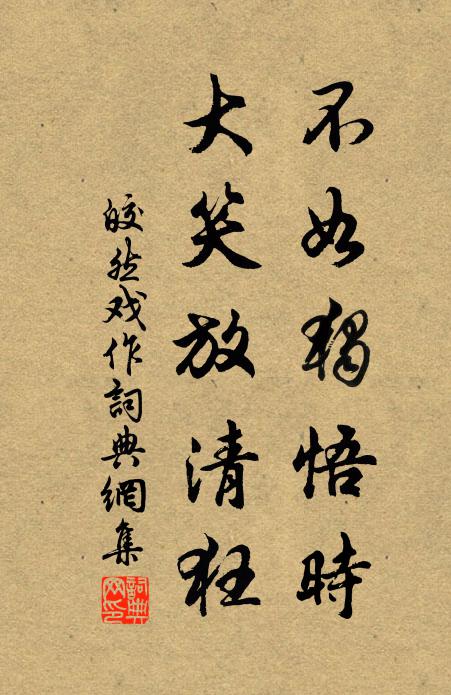 不如獨悟時
大笑放清狂
皎然戏作詞典網集
詞典網印